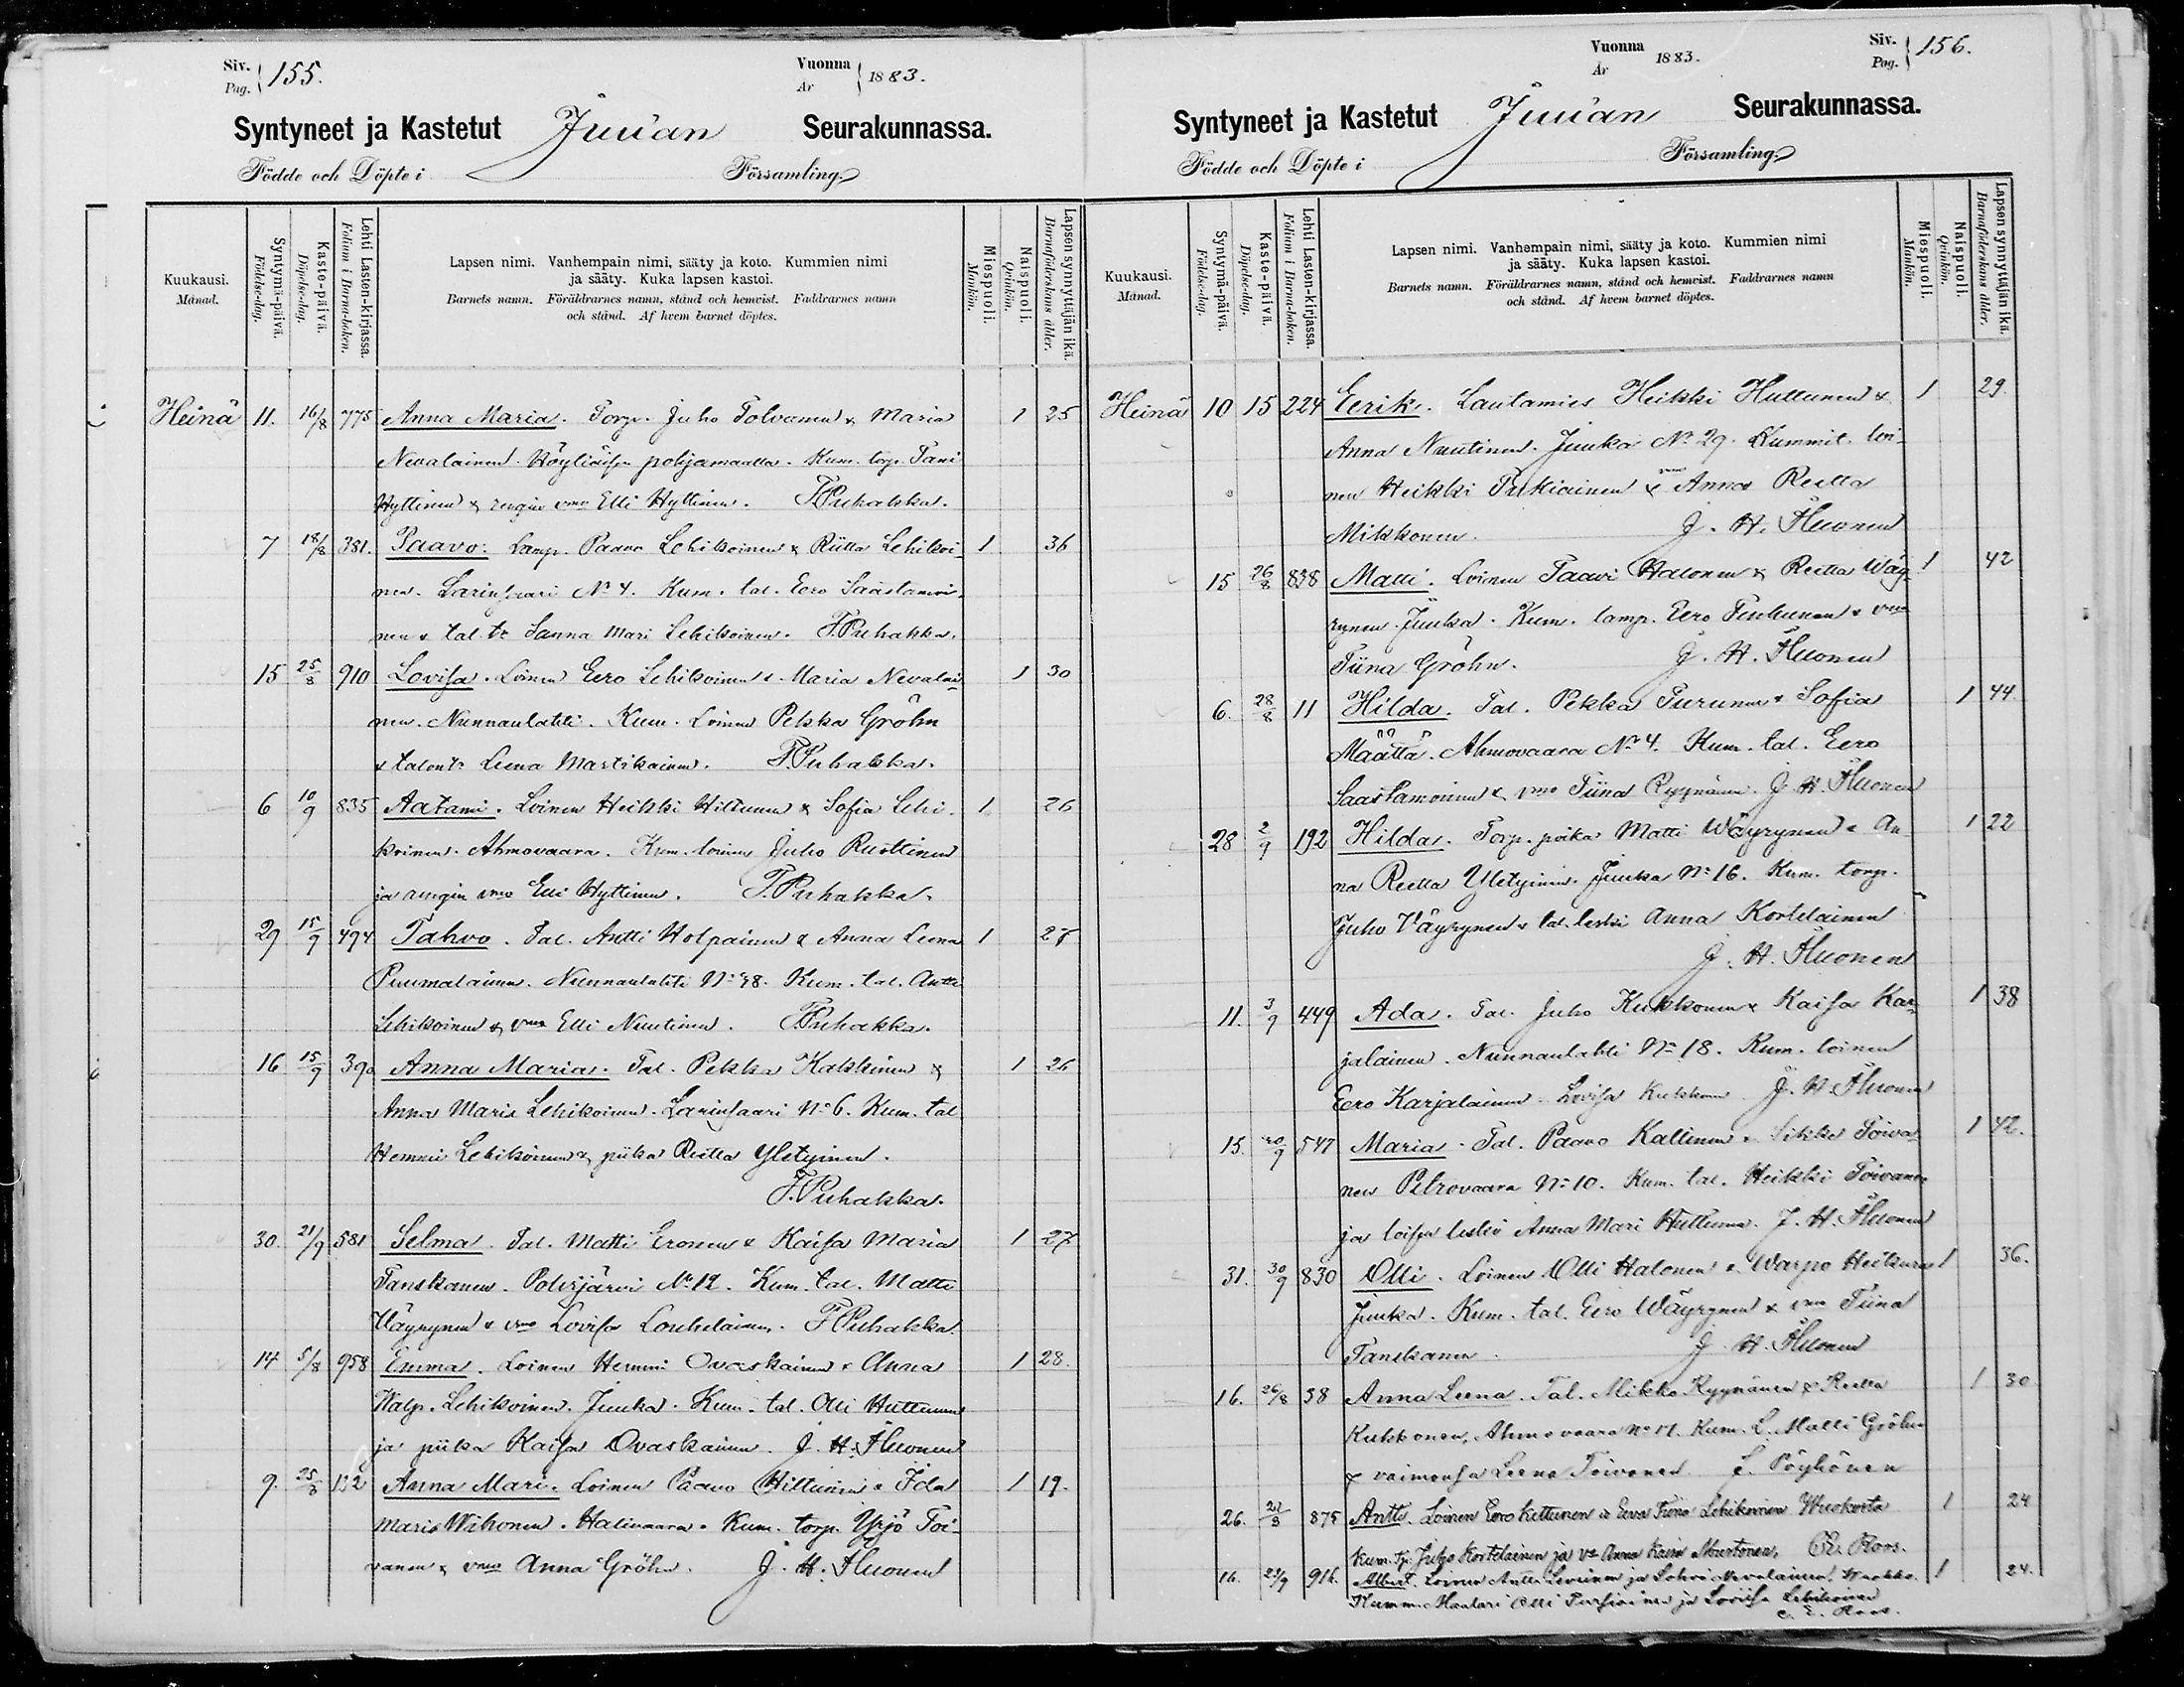 Siv. Pag. 155.
Vuonna År 1883.
Syntyneet ja Kastetut Juuan Seurakunnassa.
Födde och Döpte i Församling.
Kuukausi. Månad.
Syntymä-päivä. Födelse-dag.
Kaste-päivä. Döpelse-dag.
Lehti Lasten-kirjassa. Folium i Barna-boken.
Lapsen nimi. Vanhempain nimi, sääty ja koto. Kummien nimi
ja sääty. Kuka lapsen kastoi.
Barnets namn. Föräldrarnes namn, stånd och hemvist. Faddrarnes namn
och stånd. Af hvem barnet döptes.
Miespuoli. Mankön.
Naispuoli. Qvinkön.
Lapsensynnyttäjän ikä. Barnaföderskans ålder.
Heinä 11. 16/8 775 Anna Maria. Torp. Juho Tolvanen & Maria 1 25
Nevalainen. pohjamaalla. Kum. torp. Tani
Hyttinen & rengin vmo Elli Hyttinen. F. Puhakka.
7 18/8 381. Paavo. Lamp. Paavo Lehikoinen & Riitta Lehikoi- 1 36
nen. Larinsaari No 4. Kum. tal. Eero Saastamoi-
nen & tal. tr Sanna Mari Lehikoinen. F. Puhakka.
15 25/8 910 Lovisa. Loinen Eero Lehikoinen & Maria Nevalai- 1 30
nen. Nunnanlahti. Kum. Loinen Pekka Gröhn
& talon tr Leena Martikainen. F. Puhakka.
6 10/9 835 Aatami. Loinen Heikki Hiltunen & Sofia Lehi- 1 26
koinen. Ahmovaara. Kum. loinen Juho Ruottinen
ja rengin vmo Elli Hyttinen. F. Puhakka.
29 15/9 494 Tahvo. Tal. Antti Holpainen & Anna Leena 1
Puumalainen. Nunnanlahti No 48. Kum. tal. Antti
Lehikoinen & vmo Elli Nuutinen. F. Puhakka.
16 15/9 390 Anna Maria. Tal. Pekka Kakkinen & 1 26
Anna Maria Lehikoinen. Larinsaari No 6. Kum. tal
Hemmi Lehikoinen & piika Reetta Yletyinen.
F. Puhakka.
30. 21/9 581 Selma. Tal. Matti Eronen & Kaisa Maria 1 27
Tanskanen. Polvijärvi No 12. Kum. tal. Matti
Väyrynen & vmo Lovisa Louhelainen. F. Puhakka.
14 5/8 958 Emma. Loinen Hemmi Ovaskainen & Anna 1 28.
Walp. Lehikoinen. Juuka. Kum. tal. Olli Huttunen
ja piika Kaisa Ovaskainen. J. H. Äluonen
9. 25/8 132 Anna Mari. Loinen Paavo Hiltunen & Ida 1 19.
Maria Wihonen. Halivaara. Kum. torp. Yrjö Toi-
vanen & vmo Anna Gröhn. J. H. Äluonen
Siv. Pag. 156.
Vuonna År 1883.
Syntyneet ja Kastetut Juuan Seurakunnassa.
Födde och Döpte i Församling.
Kuukausi. Månad.
Syntymä-päivä. Födelse-dag.
Kaste-päivä. Döpelse-dag.
Lehti Lasten-kirjassa. Folium i Barna-boken.
Lapsen nimi. Vanhempain nimi, sääty ja koto. Kummien nimi
ja sääty. Kuka lapsen kastoi.
Barnets namn. Föräldrarnes namn, stånd och hemvist. Faddrarnes namn
och stånd. Af hvem barnet döptes.
Miespuoli. Mankön.
Naispuoli. Qvinkön.
Lapsensynnyttäjän ikä. Barnaföderskans ålder.
Heinä 10 15 224 Eerik. Lautamies Heikki Huttunen & 1 29.
Anna Nuutinen. Juuka No 29. Kummit. loi-
nen Heikki Turkiainen & vmo Anna Reetta
Mikkonen. J. H. Äluonen
15 26/8 838 Matti. Loinen Taavi Halonen & Reetta Wäy- 1 42
rynen. Juuka. Kum. lamp. Eero Turunen & vmo
Tiina Gröhn. J. H. Äluonen
6. 28/8 11 Hilda. Tal. Pekka Turunen & Sofia 1 44.
Määttä. Ahmovaara No 4. Kum. tal. Eero
Saastamoinen & vmo Tiina Ryynänen. J. H. Äluonen
28 2/9 192 Hilda. Torp. poika Matti Wäyrynen & An- 1 22
na Reetta Yletyinen. Juuka No 16. Kum. torp.
Juho Väyrynen & tal. leski Anna Kortelainen
J. H. Äluonen
11. 3/9 449 Ada. Tal. Juho Kukkonen & Kaisa Kar- 1 38
jalainen. Nunnanlahti No 18. Kum. loinen
Eero Karjalainen Lovisa Kukkonen J. H. Äluonen
15. 20/9 547 Maria. Tal. Paavo Kallinen & Sikke Toiva- 1 42.
nen Petrovaara No 10. Kum. tal. Heikki Toivanen
ja loisen leski Anna Mari Huttunen. J. H. Äluonen
31. 30/9 830 Olli. Loinen Olli Halonen & Warpo Heikura 1 36.
Juuka. Kum. tal. Eero Wäyrynen & vmo Tiina
Tanskanen. J. H. Äluonen
16. 26/8 38 Anna Leena. Tal. Mikko Ryynänen & Reetta 1 30
Kukkonen, Ahmovaara No 17. Kum. L. Matti Gröhn
& vaimonsa Leena Toivonen L. Pöyhönen
26. 21/8 875 Antti. Loinen Eero Kettunen & Eeva Tiina Lehikoinen 1 24
Kum. Tp. Juho Kortelainen ja vo Anna Kaisa Mustonen, E. Roos.
16. 23/9 916. Albert. Loinen Antti Leveinen ja Sohvi Nevalainen, Wuokko. 1 24.
Kumm. Mantari Olli Tursiainen ja Loviisa Lehikoinen
E. Roos.